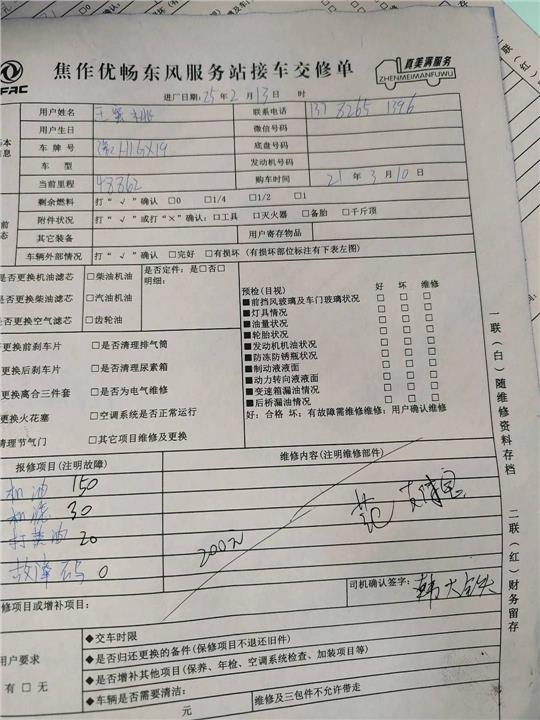 FAC
焦作优畅东风服务站接车交修单
真美满服务
ZHENMEIMANFUWU
进厂日期: 25年 2月 13日 时
用户姓名 联系电话 137 8265 1396
用户生日 微信号码
车牌号 底盘号码
车 型 发动机号码
当前里程 48862 购车时间 21年 3月 10日
剩余燃料 打“√”确认 □0 □1/4 □1/2 □1
附件状况 打“√”或打“×”确认: □工具 □灭火器 □备胎 □千斤顶
其它装备 用户寄存物品
车辆外部情况 打“√”确认 □完好 □有损坏 (有损坏部位标注有下表左图)
是否更换机油滤芯 □柴油机油 是否定件: 是□否□
明细:
是否更换柴油滤芯 □汽油机油
是否更换空气滤芯 □齿轮油
预检(目视) 好 坏 维修
■前挡风玻璃及车门玻璃状况 □ □ □
■灯具情况 □ □ □
■油量状况 □ □ □
■轮胎状况 □ □ □
■发动机机油状况 □ □ □
■防冻防锈瓶状况 □ □ □
■制动液液面 □ □ □
■动力转向液液面 □ □ □
■变速箱漏油情况 □ □ □
■后桥漏油情况 □ □ □
好: 合格 坏: 有故障需维修维修: 用户确认维修
更换前刹车片 □是否清理排气筒
更换后刹车片 □是否清理尿素箱
更换离合三件套 □是否为电气维修
更换火花塞 □空调系统是否正常运行
清理节气门 □其它项目维修及更换
报修项目(注明故障) 维修内容(注明维修部件)
机油 150
机滤 30
打黄油 20
故障码 0
200元
司机确认签字:
修项目或增补项目:
用户要求
有 □ 无
◆交车时限
◆是否归还更换的备件(保修项目不退还旧件)
◆是否增补其他项目(保养、年检、空调系统检查、加装项目等)
◆车辆是否需要清洁:
元 维修及三包件不允许带走
一联(白)随维修资料存档
二联(红)财务留存